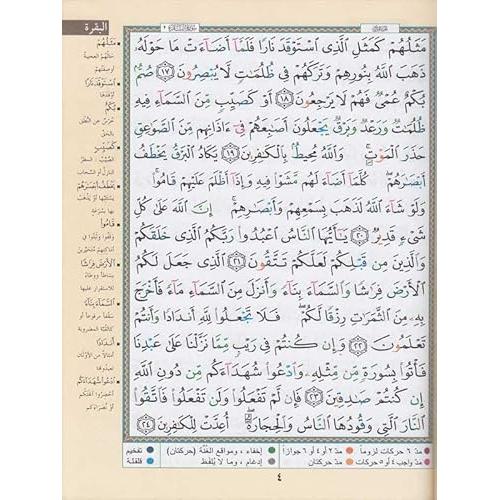 البقرة
مَثَلُهُمْ كَمَثَلِ ٱلَّذِى ٱسْتَوْقَدَ نَارًا فَلَمَّآ أَضَآءَتْ مَا حَوْلَهُۥ
ذَهَبَ ٱللَّهُ بِنُورِهِمْ وَتَرَكَهُمْ فِى ظُلُمَٰتٍ لَّا يُبْصِرُونَ ١٧ صُمٌّۢ
بُكْمٌ عُمْىٌ فَهُمْ لَا يَرْجِعُونَ ١٨ أَوْ كَصَيِّبٍ مِّنَ ٱلسَّمَآءِ فِيهِ
ظُلُمَٰتٌ وَرَعْدٌ وَبَرْقٌ يَجْعَلُونَ أَصَٰبِعَهُمْ فِىٓ ءَاذَانِهِم مِّنَ ٱلصَّوَٰعِقِ
حَذَرَ ٱلْمَوْتِ وَٱللَّهُ مُحِيطٌۢ بِٱلْكَٰفِرِينَ ١٩ يَكَادُ ٱلْبَرْقُ يَخْطَفُ
أَبْصَٰرَهُمْ كُلَّمَآ أَضَآءَ لَهُم مَّشَوْا۟ فِيهِ وَإِذَآ أَظْلَمَ عَلَيْهِمْ قَامُوا۟
وَلَوْ شَآءَ ٱللَّهُ لَذَهَبَ بِسَمْعِهِمْ وَأَبْصَٰرِهِمْ إِنَّ ٱللَّهَ عَلَىٰ كُلِّ
شَىْءٍ قَدِيرٌ ٢٠ يَٰٓأَيُّهَا ٱلنَّاسُ ٱعْبُدُوا۟ رَبَّكُمُ ٱلَّذِى خَلَقَكُمْ
وَٱلَّذِينَ مِن قَبْلِكُمْ لَعَلَّكُمْ تَتَّقُونَ ٢١ ٱلَّذِى جَعَلَ لَكُمُ
ٱلْأَرْضَ فِرَٰشًا وَٱلسَّمَآءَ بِنَآءً وَأَنزَلَ مِنَ ٱلسَّمَآءِ مَآءً فَأَخْرَجَ
بِهِۦ مِنَ ٱلثَّمَرَٰتِ رِزْقًا لَّكُمْ فَلَا تَجْعَلُوا۟ لِلَّهِ أَندَادًا وَأَنتُمْ
تَعْلَمُونَ ٢٢ وَإِن كُنتُمْ فِى رَيْبٍ مِّمَّا نَزَّلْنَا عَلَىٰ عَبْدِنَا
فَأْتُوا۟ بِسُورَةٍ مِّن مِّثْلِهِۦ وَٱدْعُوا۟ شُهَدَآءَكُم مِّن دُونِ ٱللَّهِ
إِن كُنتُمْ صَٰدِقِينَ ٢٣ فَإِن لَّمْ تَفْعَلُوا۟ وَلَن تَفْعَلُوا۟ فَٱتَّقُوا۟
ٱلنَّارَ ٱلَّتِى وَقُودُهَا ٱلنَّاسُ وَٱلْحِجَارَةُ أُعِدَّتْ لِلْكَٰفِرِينَ ٢٤
مَثَلُهُمْ
حالُهم العجيبة
أو صفتهم
اسْتَوْقَدَ نَارًا
أوقدها
بُكْمٌ
خُرْسٌ عن النُّطْق
بالحق
كَصَيِّبٍ
الصَّيِّب: المطر
النازل أو السَّحاب
يَخْطَفُ أَبْصَارَهُمْ
يستلبها أو يذهب
بها بسرعة
قَامُوا
وقفوا وثبتوا في
أماكنهم متحيّرين
الأَرْضَ فِرَاشًا
بساطًا ووطاءً
للاستقرار عليها
السَّمَاءَ بِنَاءً
سقفًا مرفوعًا أو
كالقُبَّة المضروبة
أَنْدَادًا
أمثالًا من الأوثان
تعبدونها
ادْعُوا شُهَدَاءَكُمْ
أحضِروا آلهتكم
أو نُصراءكم
مدّ ٦ حركات لزوماً مدّ ٢ أو ٤ أو ٦ جوازاً إخفاء، ومواقع الغُنَّة (حركتان) تفخيم
مدّ واجب ٤ أو ٥ حركات مدّ حركتان إدغام، وما لا يُلفَظ قلقلة
٤